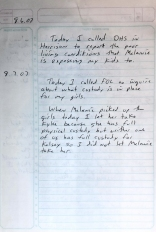 8.6.07
Today I called DHS in
Harrison to report the poor
living conditions that Melanie
is exposing my kids to.
8.7.07
Today I called FOC to inquire
about what custody is in place
for my girls.
When Melanie picked up the
girls today I let her take
because she has full
physical custody but neither one
of us has full custody for
Kelsey so I did not let Melanie
take her.